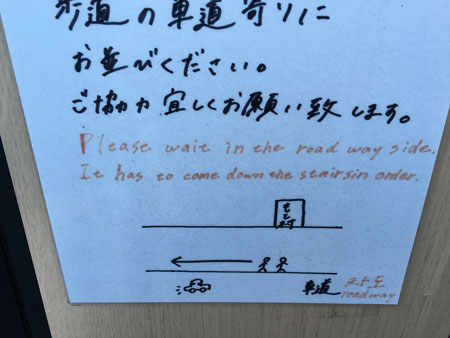 歩道の車道寄りに
お並びください。
ご協力宜しくお願い致します。
Please wait in the road way side.
It has to come down the stairsin order.
もと村
車道
roadway